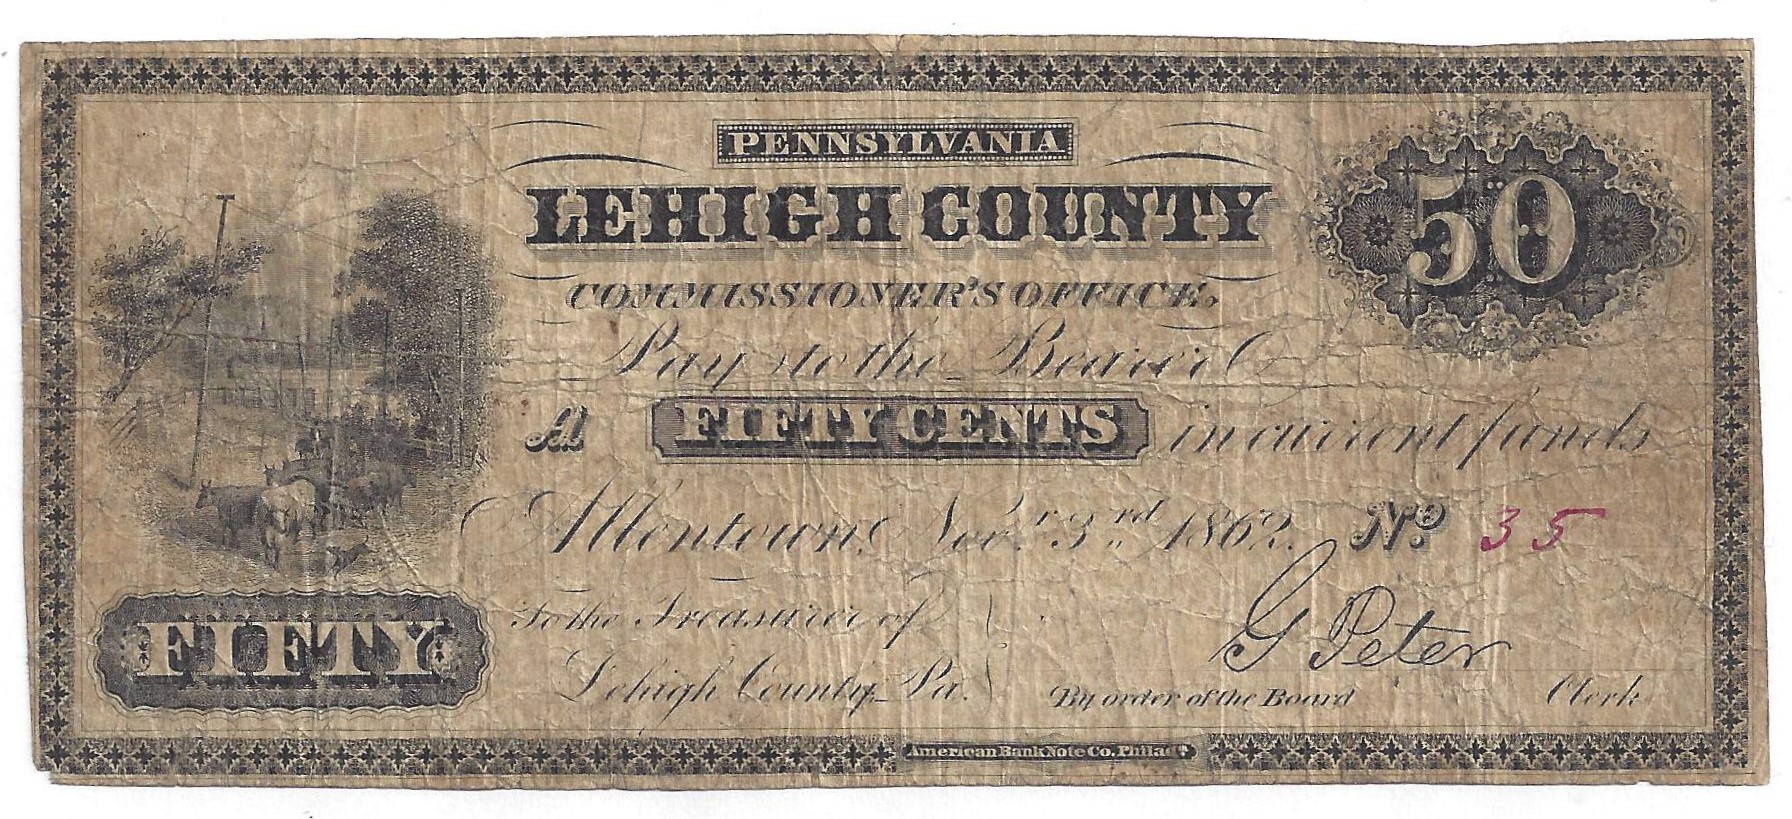 PENNSYLVANIA
LEHIGH COUNTY
50
COMMISSIONER'S OFFICE.
Pay to the Bearer
FIFTY CENTS in current funds
Allentown, Novr. 3rd 1862. No. 35
FIFTY
To the Treasurer of
Lehigh County, Pa.
G Peter
By order of the Board Clerk
American Bank Note Co. Philada